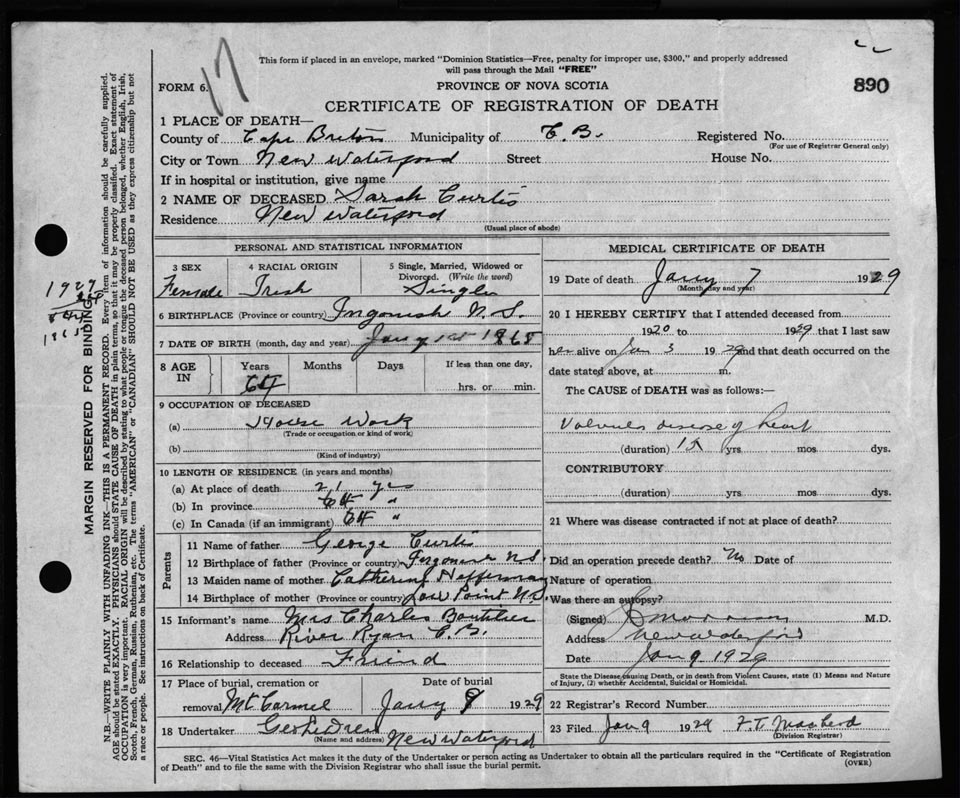 17
This form if placed in an envelope, marked "Dominion Statistics—Free, penalty for improper use, $300," and properly addressed
will pass through the Mail "FREE"
FORM 6.
PROVINCE OF NOVA SCOTIA
890
CERTIFICATE OF REGISTRATION OF DEATH
1 PLACE OF DEATH—
County of Cape Breton Municipality of C B. Registered No.
(For use of Registrar General only)
City or Town New Waterford Street House No.
If in hospital or institution, give name
2 NAME OF DECEASED Sarah Curtis
Residence New Waterford
(Usual place of abode)
PERSONAL AND STATISTICAL INFORMATION
3 SEX 4 RACIAL ORIGIN 5 Single, Married, Widowed or
Divorced. (Write the word)
Female Irish Single
6 BIRTHPLACE (Province or country) Ingonish N.S.
7 DATE OF BIRTH (month, day and year) Jany 1st 1865
8 AGE IN Years Months Days If less than one day,
64 hrs. or min.
9 OCCUPATION OF DECEASED
(a) House Work
(Trade or occupation or kind of work)
(b)
(Kind of industry)
10 LENGTH OF RESIDENCE (in years and months)
(a) At place of death 21 yrs
(b) In province 64 "
(c) In Canada (if an immigrant) 64 "
Parents
11 Name of father George Curtis
12 Birthplace of father (Province or country) Ingonish NS.
13 Maiden name of mother Catherine Heffernan
14 Birthplace of mother (Province or country) Low Point N.S.
15 Informant's name Mrs Charles Boutilier
Address River Ryan C.B.
16 Relationship to deceased Friend
17 Place of burial, cremation or Date of burial
removal Mt Carmel Jany 9 1929
18 Undertaker
(Name and address) New Waterford
MEDICAL CERTIFICATE OF DEATH
19 Date of death Jany 7 1929
(Month, day and year)
20 I HEREBY CERTIFY that I attended deceased from
1920 to 1929 that I last saw
her alive on Jan 3 1929 and that death occurred on the
date stated above, at m.
The CAUSE of DEATH was as follows:—
disease of heart
(duration) 15 yrs mos dys.
CONTRIBUTORY
(duration) yrs mos dys.
21 Where was disease contracted if not at place of death?
Did an operation precede death? No Date of
Nature of operation
Was there an autopsy?
(Signed) Morrison M.D.
Address New Waterford
Date Jan 9 1929
State the Disease causing Death, or in death from Violent Causes, state (1) Means and Nature
of Injury, (2) whether Accidental, Suicidal or Homicidal.
22 Registrar's Record Number
23 Filed Jan 9 1929 F.T.
(Division Registrar)
SEC. 46—Vital Statistics Act makes it the duty of the Undertaker or person acting as Undertaker to obtain all the particulars required in the "Certificate of Registration
of Death" and to file the same with the Division Registrar who shall issue the burial permit.
(OVER)
1929
64
1865
MARGIN RESERVED FOR BINDING
N.B.—WRITE PLAINLY WITH UNFADING INK—THIS IS A PERMANENT RECORD. Every item of information should be carefully supplied.
AGE should be stated EXACTLY. PHYSICIANS should STATE CAUSE OF DEATH in plain terms, so that it may be properly classified. Exact statement of
OCCUPATION is very important. RACIAL ORIGIN will be described by stating to what people or tongue the deceased person belonged, whether English, Irish,
Scotch, French, German, Russian, Ruthenian, etc. The terms "AMERICAN" or "CANADIAN" SHOULD NOT BE USED as they express citizenship but not
a race or people. See instructions on back of Certificate.